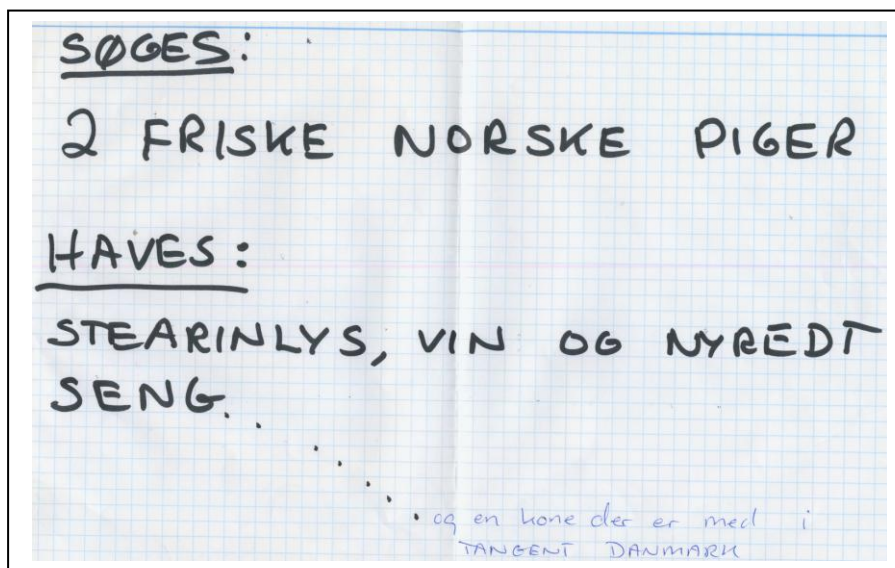 SØGES:
2 FRISKE NORSKE PIGER
HAVES:
STEARINLYS, VIN OG NYREDT
SENG.........
og en kone der er med i
TANGENT DANMARK